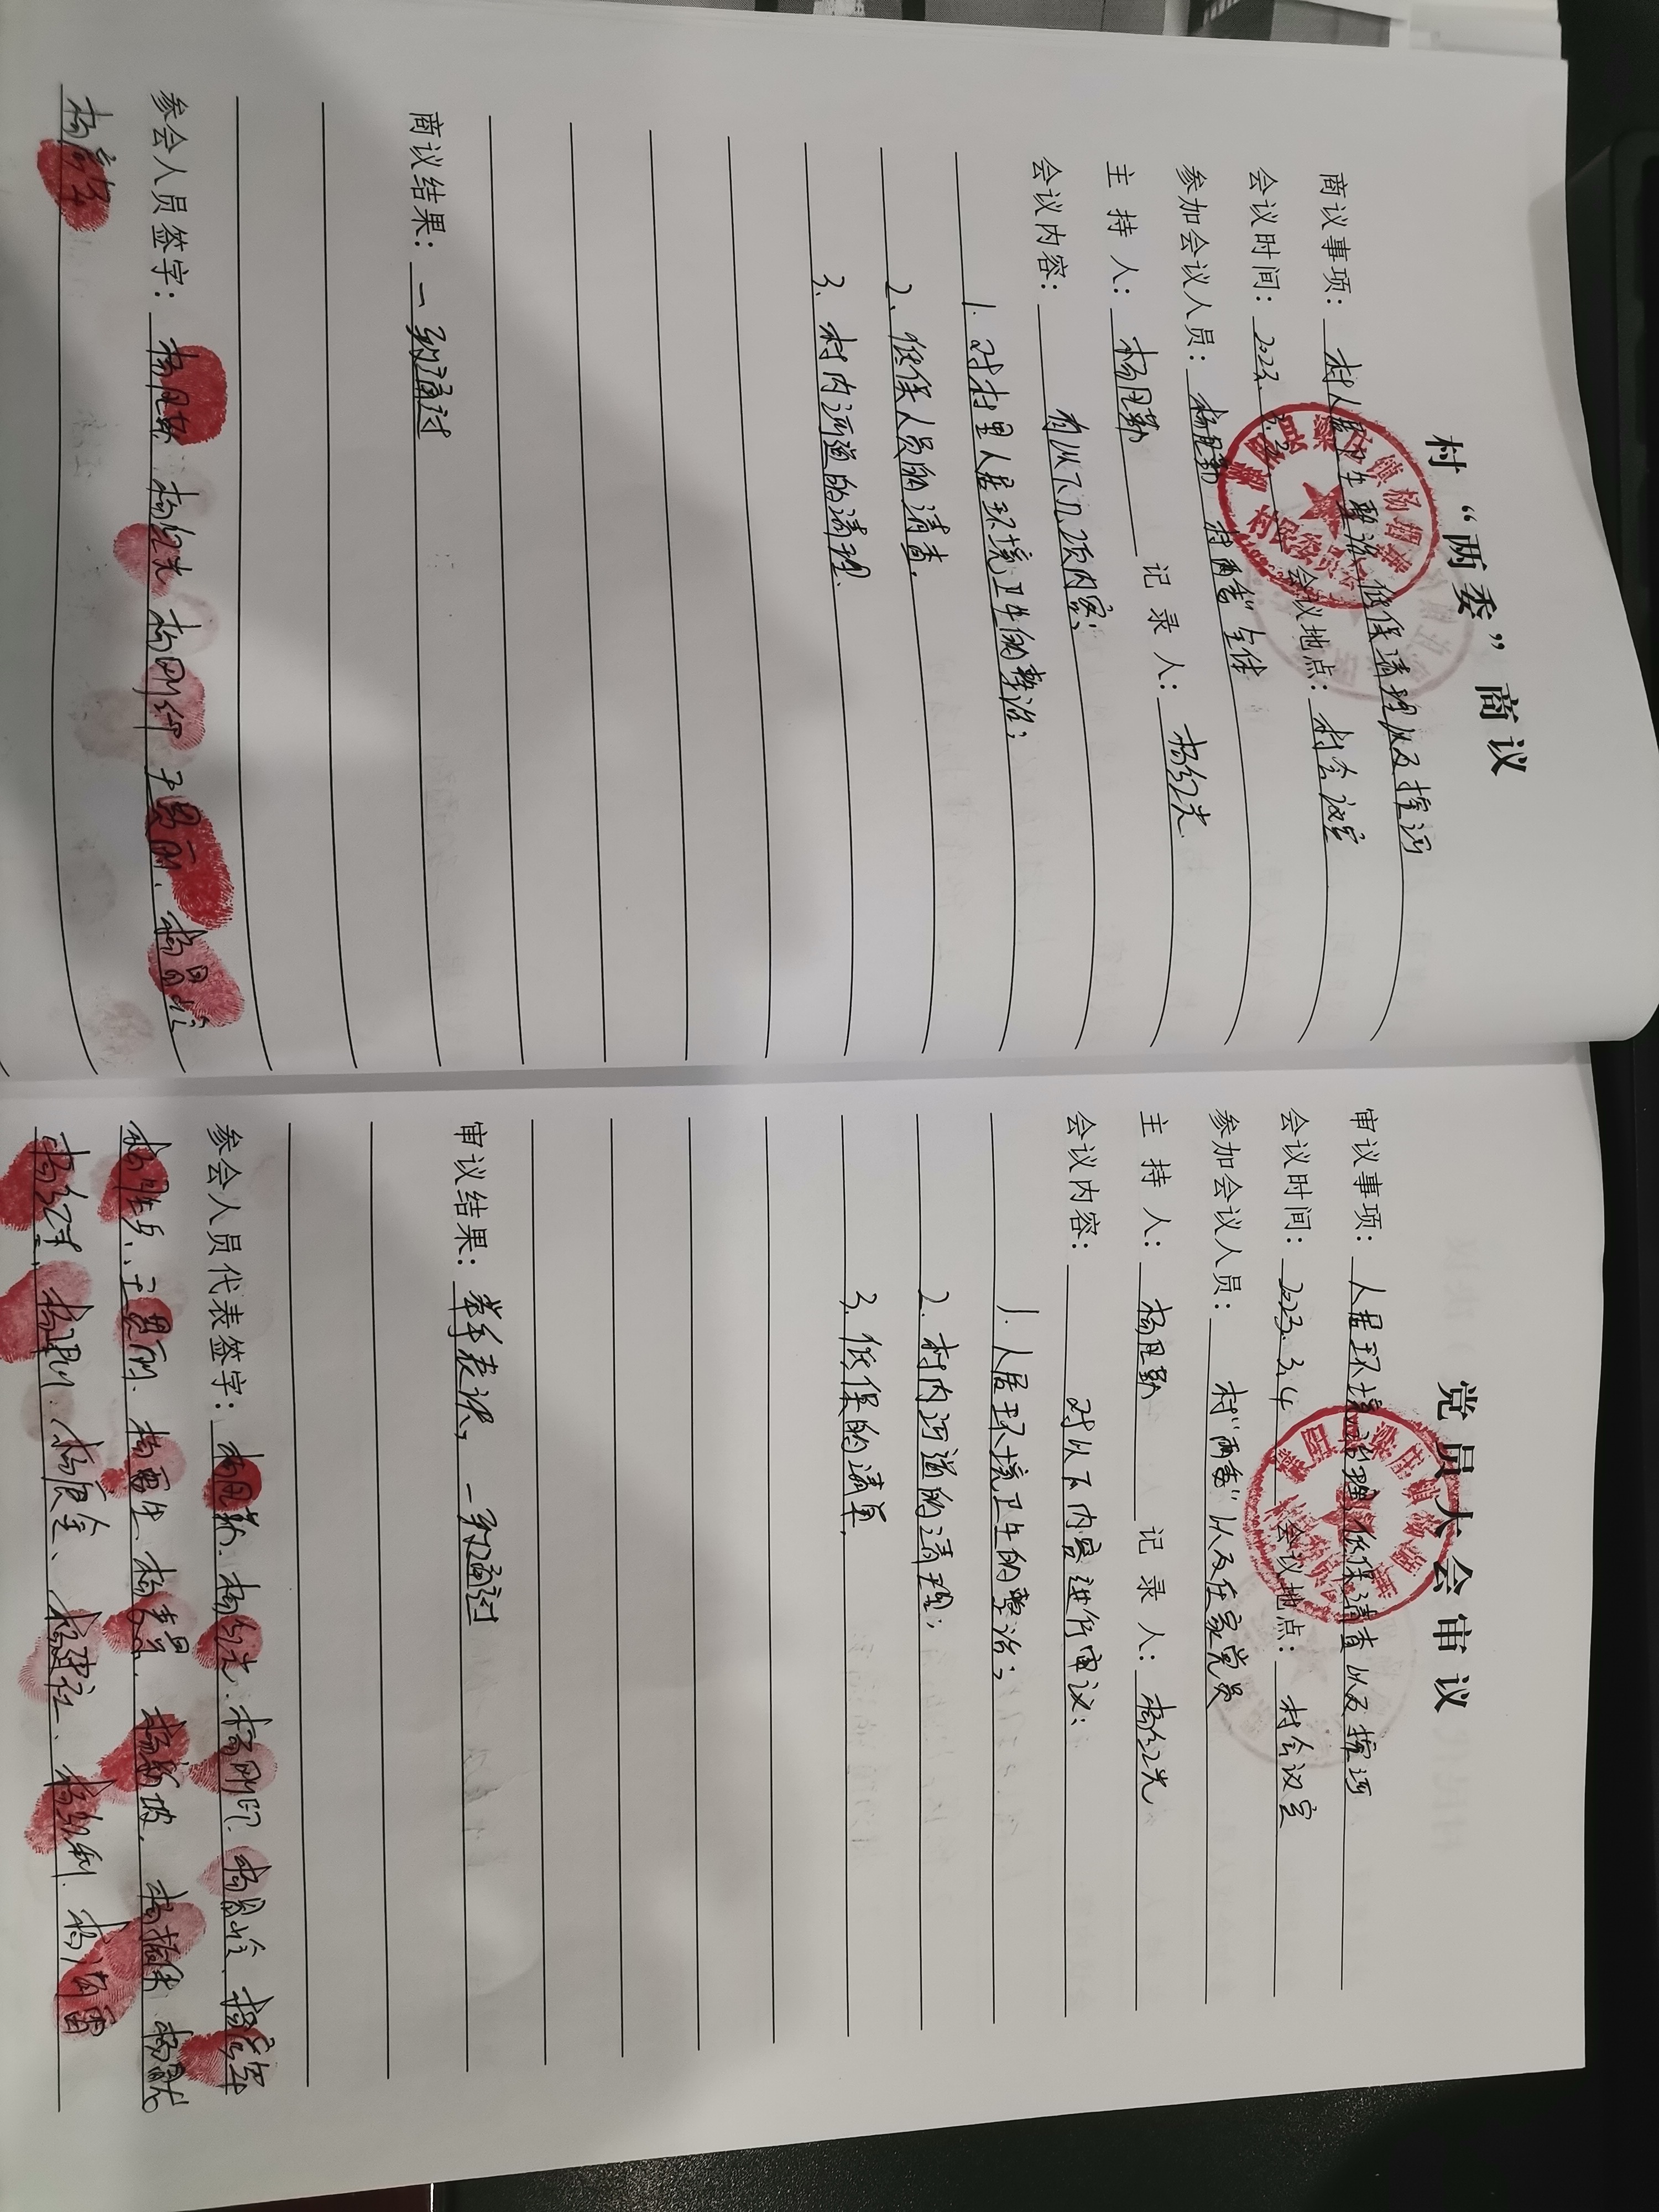 村“两委”商议
商议事项：村人居卫生整治、低保清理以及挖河
会议时间：2023.3.2 会议地点：村会议室
参加会议人员：杨月勤 村“两委”全体
主持人：杨月勤 记录人：杨红光
会议内容：有以下几项内容：
1. 对村里人居环境卫生的整治；
2. 低保人员的清查.
3. 村内河道的清理.
商议结果：一致通过
参会人员签字：杨红光 杨刚印 王贯丽
杨彦军
党员大会审议
审议事项：人居环境治理、低保清查以及挖河
会议时间：2023.3.4 会议地点：村会议室
参加会议人员：村“两委”以及在家党员
主持人：杨月勤 记录人：杨红光
会议内容：对以下内容进行审议：
1. 人居环境卫生的整治；
2. 村内河道的清理；
3. 低保的清单.
审议结果：举手表决，一致通过
参会人员代表签字：杨月勤. 杨红光. 杨刚印. 杨彦军
王贯丽. 杨雷生. 杨麦景. 杨新坡.
杨辰金、杨建社、杨红利. 杨海雷